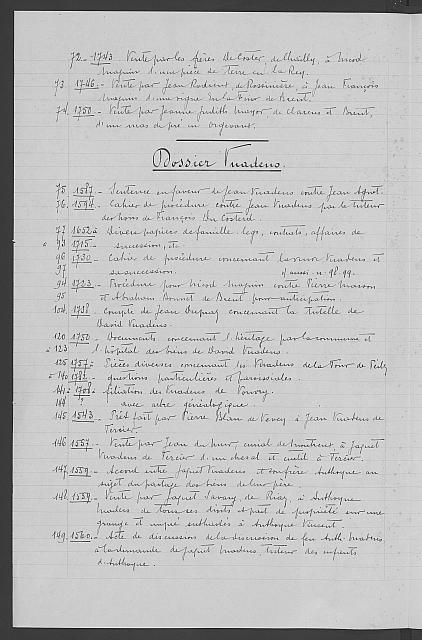 72. - 1743 Vente par les frères De Coster, de Chailly, à Nicod
Magnin d'une pièce de terre en la Rey.
73. 1746. - Vente par Jean Rodieux, de Rossinière, à Jean François
Magnin d'une vigne en la Tour de Brent.
74. 1750. - Vente par Jeanne Judith Mayor, de Clarens et Brent,
d'un mas de pré en
Dossier Vuadens.
75. 1587. - Sentence en faveur de Jean Vuadens contre Jean
76. 1594. - Cahier de procédure contre Jean Vuadens par le tuteur
des hoirs de François Du Costerd.
77 1652 à - Divers papiers de famille: legs, contrats, affaires de
à 93 1715 - succession, etc
96 1730. - Cahier de procédure concernant la veuve Vuadens et
97 sa succession. cf. aussi n. 98-99.
94 1723. - Procédure pour Nicod Magnin contre Pierre Masson
95 et Abraham Bonnet de Brent pour anticipation.
104. 1738. - Compte de Jean Dupuy concernant la tutelle de
David Vuadens.
120 1750 - Documents concernant l'héritage par la commune et
à 123 l'hôpital des biens de David Vuadens.
125 1757 - Pièces diverses concernant les Vuadens de la Tour de Peilz
à 140 1787 - questions particulières et paroissiales.
141 à 1708 - filiation des Vuadens de Vouvry
144 ? avec arbre généalogique.
145. 1543. - Prêt fait par Pierre Blanc de Vevey à Jean Vuadens de
Tercier.
146. 1557. - Vente par Jean du Mur, curial de Montreux, à Jaquet
Vuadens de Tercier d'un cheval et outil à Tercier.
147. 1559. - Accord entre Jaquet Vuadens et son frère Anthoyne au
sujet du partage des biens de leur père
148. 1559. - Vente par Jaquet Savary, de Riaz, à Anthoyne
Vuadens de tous ses droits et part de propriété sur une
grange et
à Anthoyne Vincent.
149. 1560. - Acte de discussion de la discussion de feu Anth. Vuadens
à la demande de Jaquet Vuadens, tuteur des enfants
d'Anthoyne.